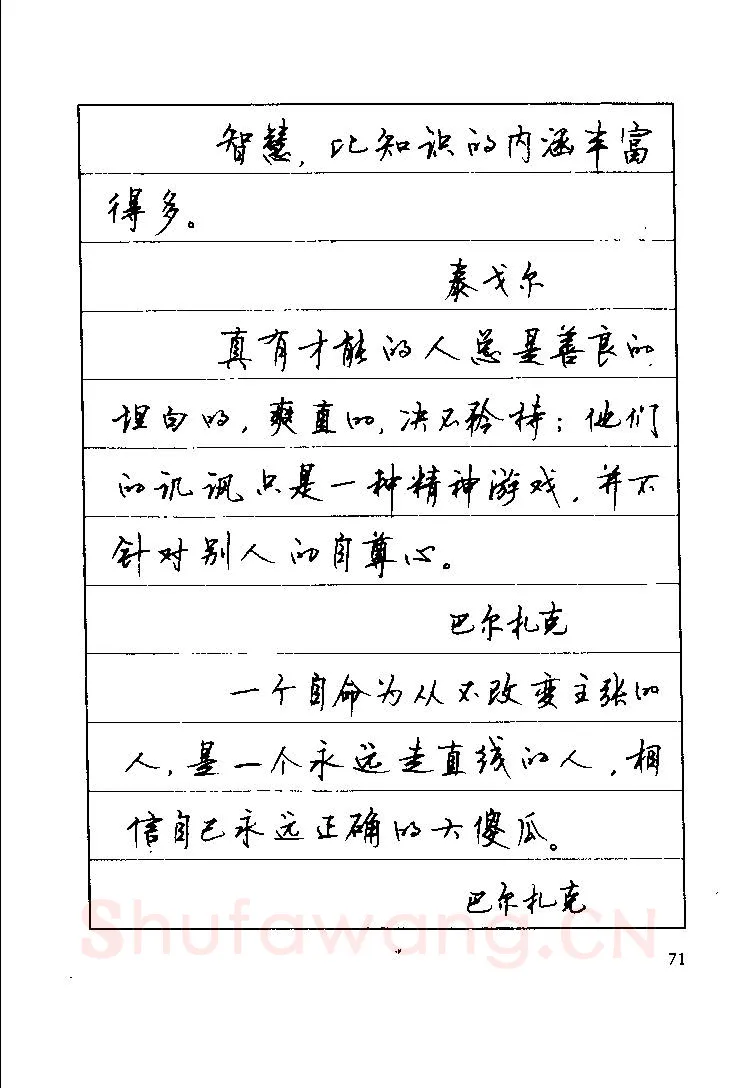 智慧，比知识的内涵丰富
得多。
泰戈尔
真有才能的人总是善良的
坦白的，爽直的，决不矜持；他们
的讥讽只是一种精神游戏，并不
针对别人的自尊心。
巴尔扎克
一个自命为从不改变主张的
人，是一个永远走直线的人，相
信自己永远正确的大傻瓜。
巴尔扎克
Shufawang.CN
71